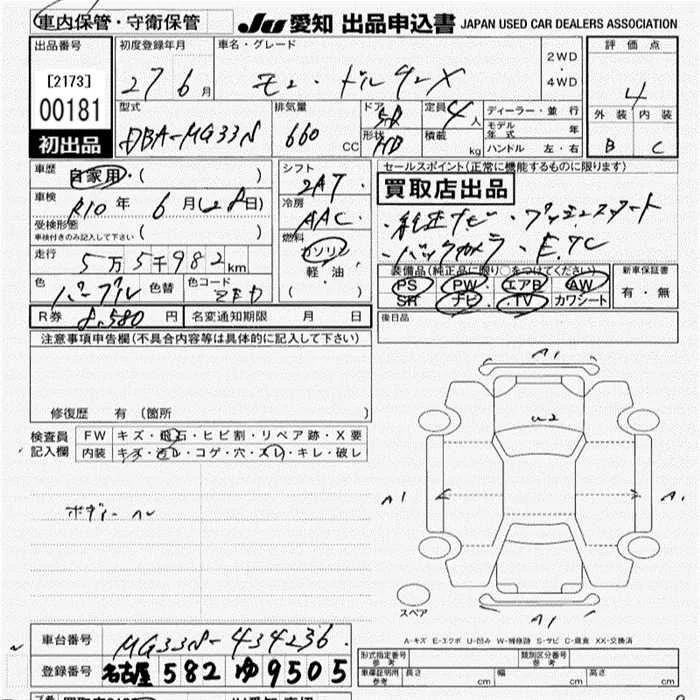 車内保管・守衛保管
JU 愛知 出品申込書 JAPAN USED CAR DEALERS ASSOCIATION
出品番号
[2173]
00181
初出品
初度登録年月
27 6月
車名・グレード
モコ・ドルチェX
2WD
・
4WD
評価点
4
外装 内装
B C
型式
DBA-MG33S
排気量
660 CC
ドア
5D
形状
HB
定員
4人
積載
kg
ディーラー・並行
モデル年式 年
ハンドル 左・右
車歴
自家用・( )
車検
R10年 6月(28日)
受検形態
車検付きのみ記入して下さい ( )
走行
5万5千982km
色
パープル
色替
色コード
R券 8,580円
名変通知期限 月 日
シフト
2AT
冷房
AAC
燃料
ガソリン
軽油
( )
セールスポイント(正常に機能するものに限ります)
買取店出品
・純正ナビ・プッシュスタート
・バックカメラ・ETC
装備品(純正品に限り○をつけてください)
PS PW エアB AW
SR ナビ TV カワシート
新車保証書
有・無
後日品
注意事項申告欄(不具合内容等は具体的に記入して下さい)
修復歴 有(箇所 )
検査員記入欄
FW キズ・飛石・ヒビ割・リペア跡・X要
内装 キズ・汚レ・コゲ・穴・スレ・キレ・破レ
A1
U2
A1
A1
A1
スペア
A-キズ E-エクボ U-凹み W-補修跡 S-サビ C-腐食 XX-交換済
車台番号 MG33S-434236
登録番号 名古屋 582 ゆ 9505
形式指定番号
参考
類別区分番号
参考
車庫証明用
参考
長さ cm 幅 cm 高さ cm